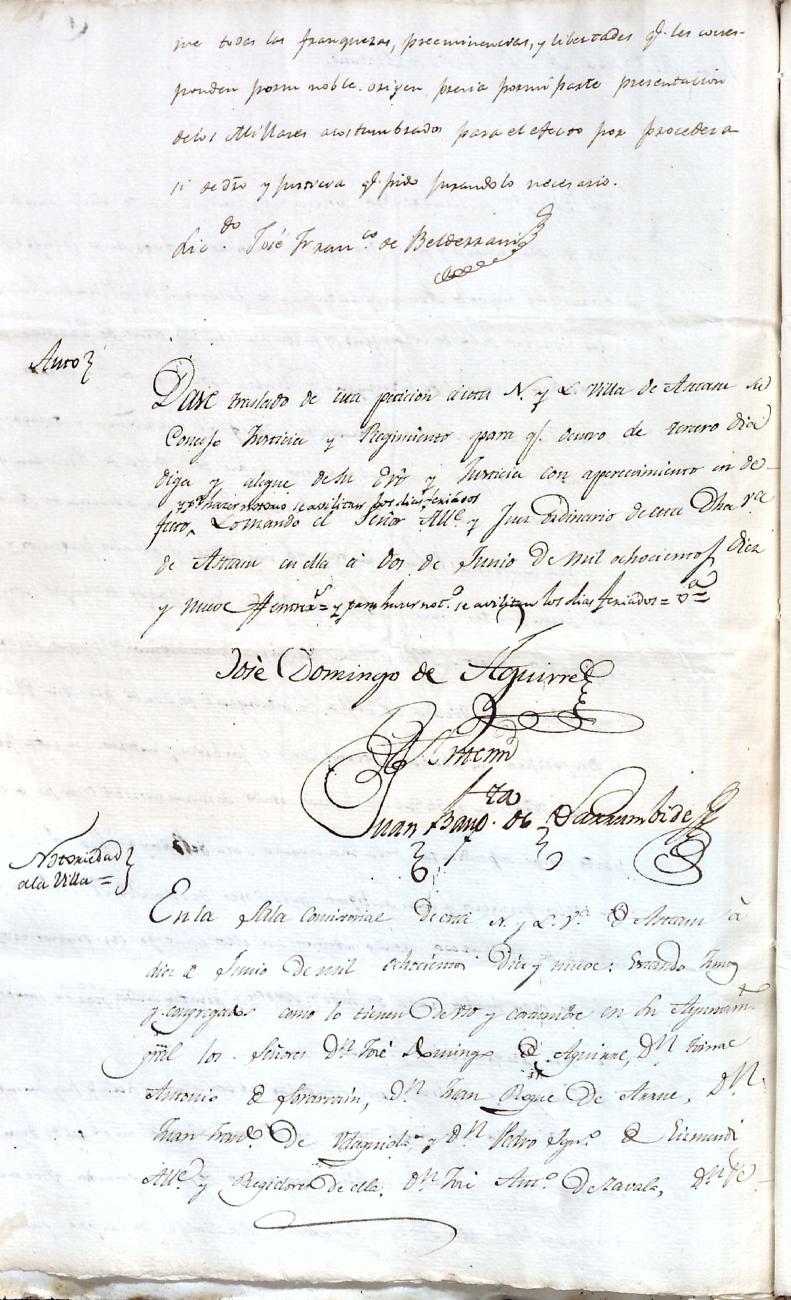 me todas las franquezas, preeminencias, y libertades q.e les corres-
ponden por su noble origen, previa por mi parte presentacion
de los Millares acostumbrados para el efecto por proceder a-
si de dro y justicia q.e pido jurandolo necesario.
Lic.do José Fran.co de Belderrain
Auto
Dase traslado de esta peticion a esta N. y L. Villa de Ataun su
Concejo Justicia y Regimiento para q.e dentro de tercero dia
diga y alegue de su dro y Justicia con apercivimiento en de-
y p.a hazer notorio se avilitan los dias feriados
fecto, Lo mando el Señor Alc.e y Juez ordinario de esta dha v.a
de Ataun en ella à dos de Junio de mil ochocientos diez
y nueve // entrer.s = y para hacer not.o se avilitan los dias feriados = v.a =
José Domingo de Aguirre
Ante mi
Juan Baup.ta de Larrumbide
Notoriedad
a la Villa =
En la Sala Consistorial de esta N. y L. V.a de Ataun à
diez de Junio de mil ochocientos diez y nueve: Estando juntos
y congregados como lo tienen de uso y costumbre en su Ayuntam.to
gral los Señores D.n José Domingo de Aguirre, D.n
Antonio de D.n Juan Roque de D.n
Juan Fran.co de y D.n Pedro Ign.o de Eizmendi
Alc.e y Regidores de ella, D.n José Ant.o de Zavala, D.n Pe-